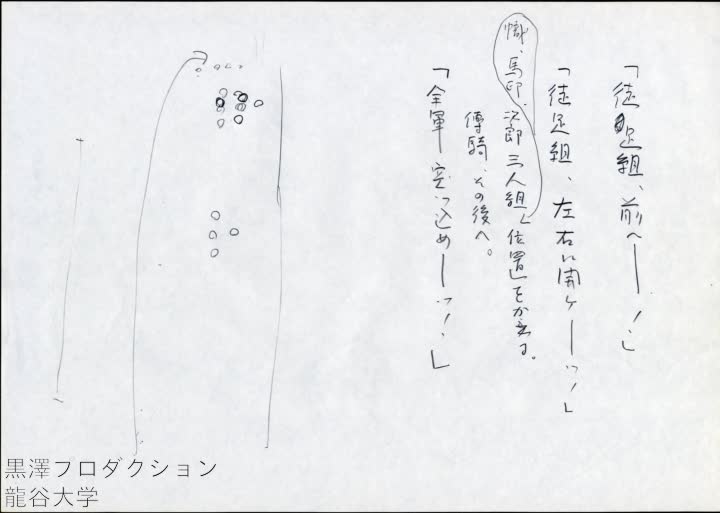 「徒足組、前へー！」
「徒足組、左右に開ケーッ！」
幟、馬印、次郎三人組、位置をかえる。
傳騎、その後へ。
「全軍 突っ込めーッ！」
黒澤プロダクション
龍谷大学